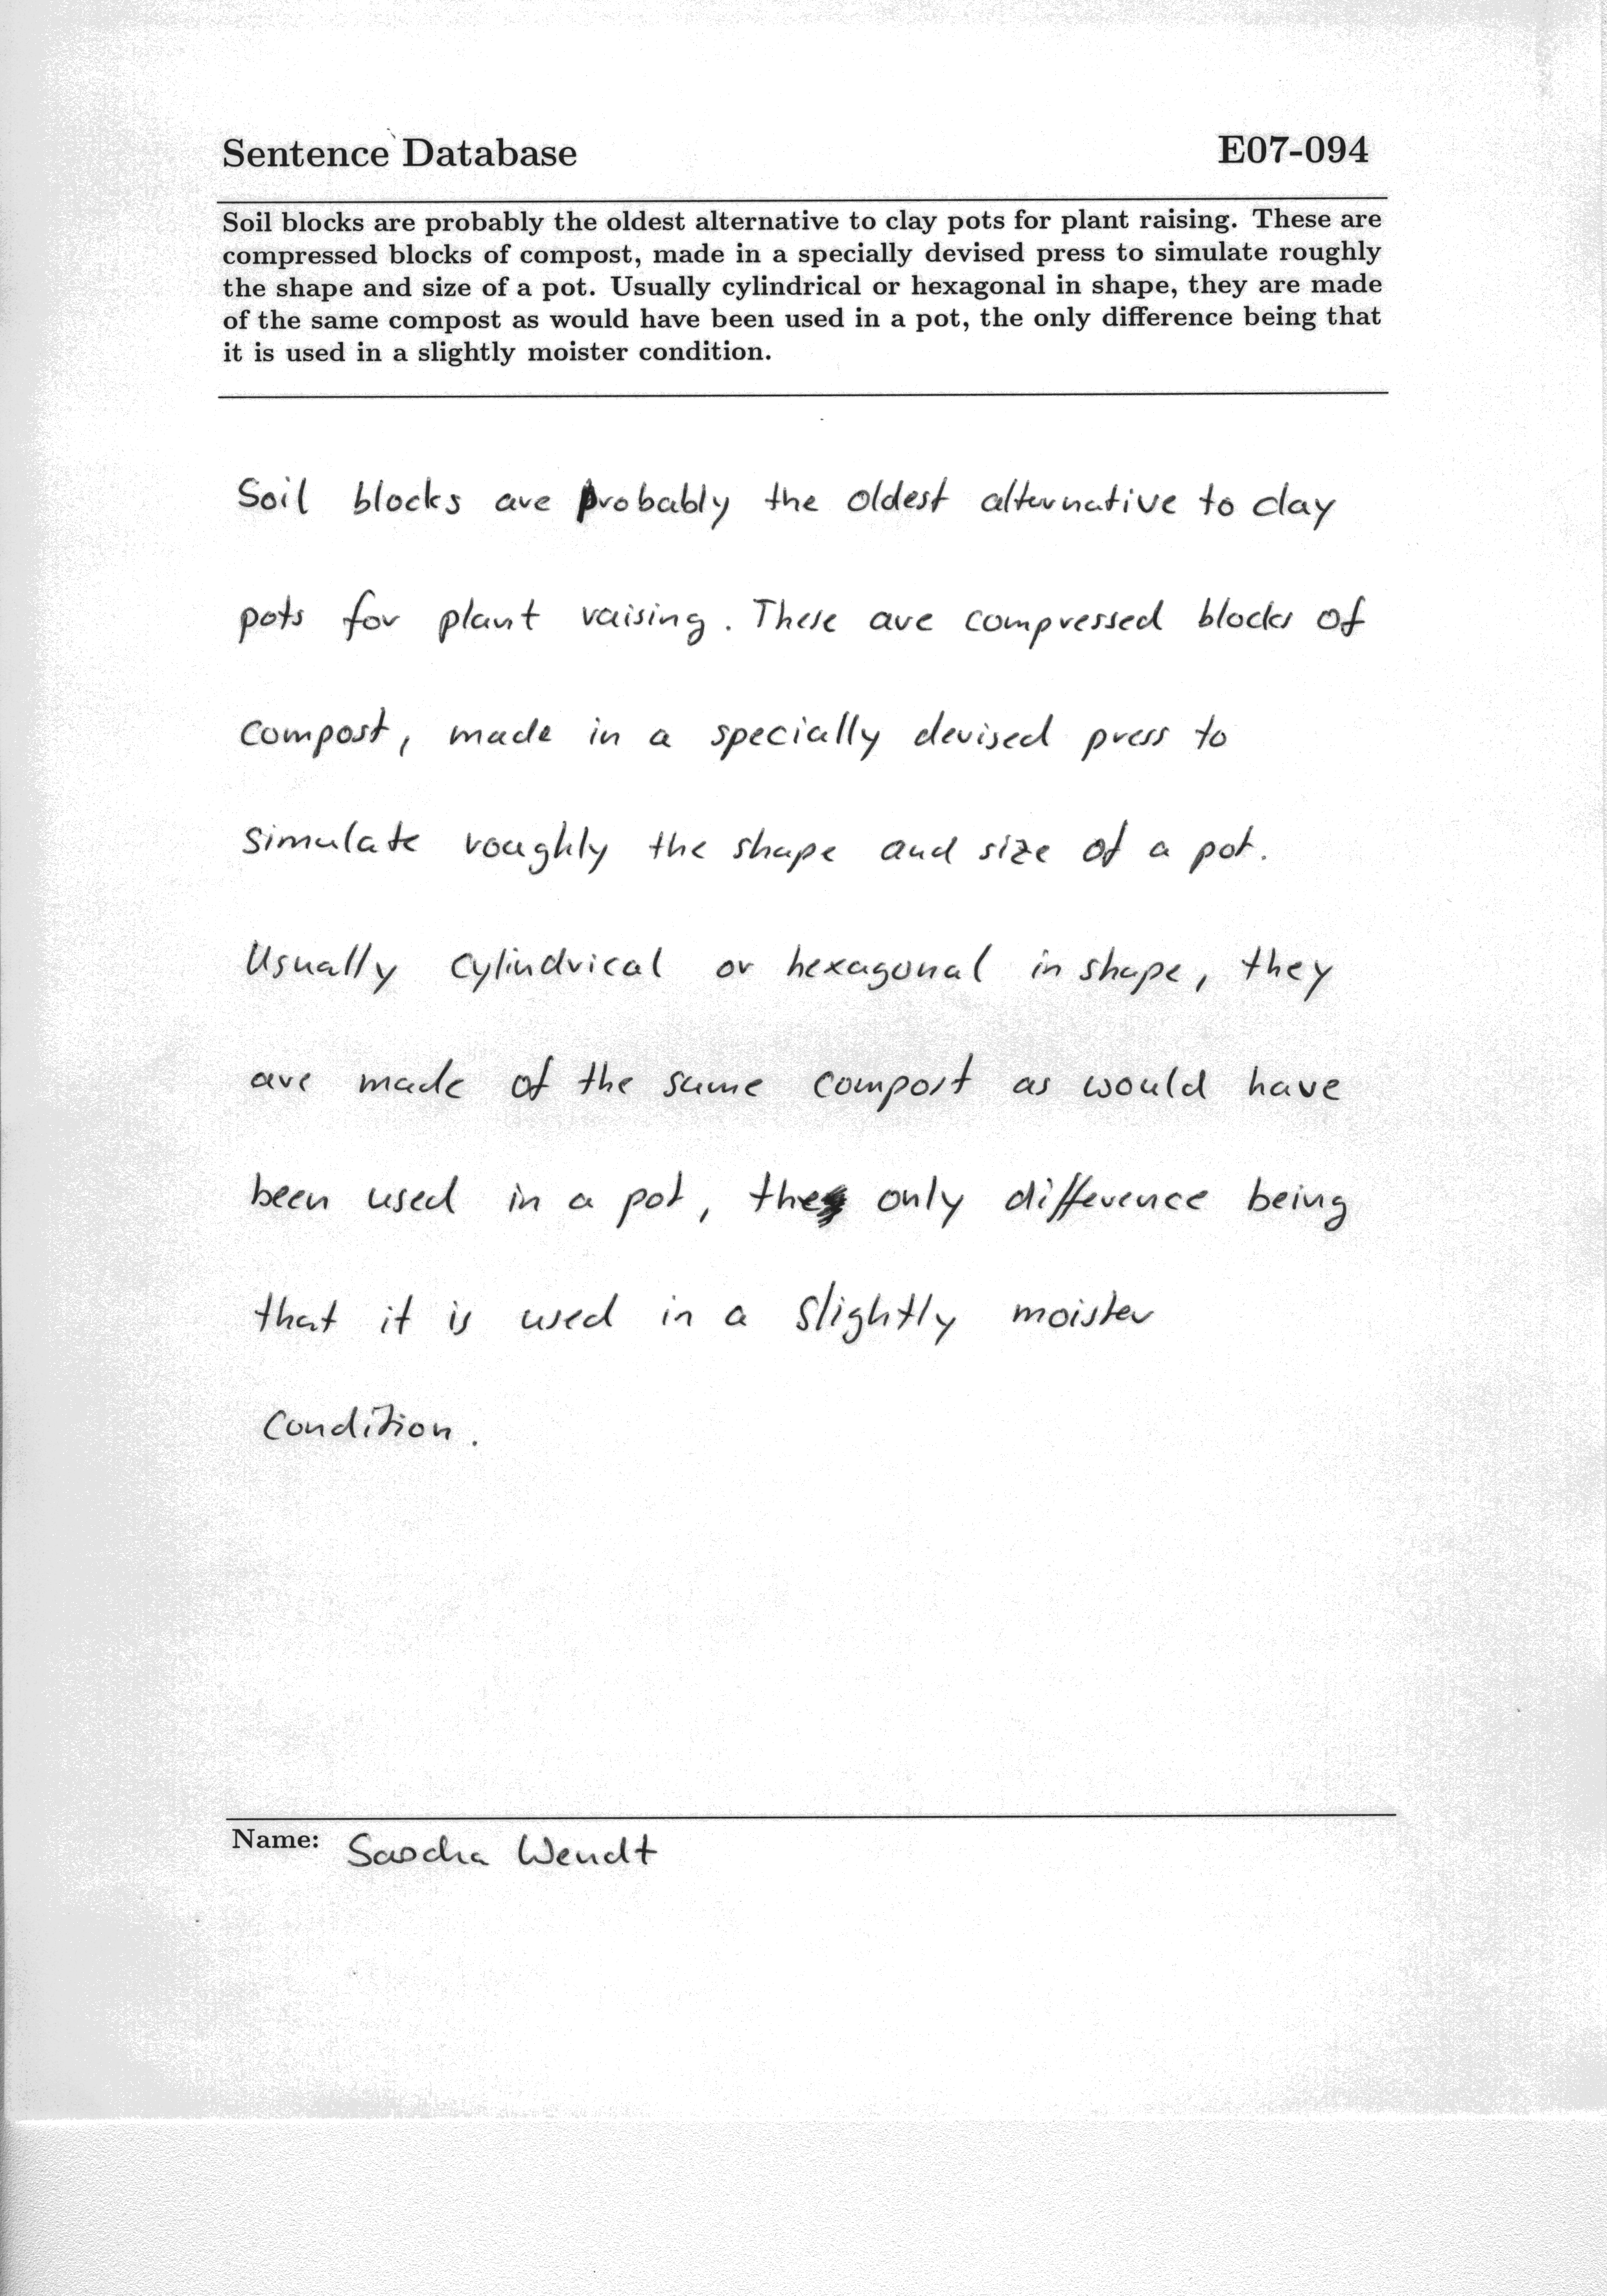 Sentence Database E07-094
Soil blocks are probably the oldest alternative to clay pots for plant raising. These are
compressed blocks of compost, made in a specially devised press to simulate roughly
the shape and size of a pot. Usually cylindrical or hexagonal in shape, they are made
of the same compost as would have been used in a pot, the only difference being that
it is used in a slightly moister condition.
Soil blocks are probably the oldest alternative to clay
pots for plant raising. These are compressed blocks of
compost, made in a specially devised press to
simulate roughly the shape and size of a pot.
Usually cylindrical or hexagonal in shape, they
are made of the same compost as would have
been used in a pot, the only difference being
that it is used in a slightly moister
condition.
Name: Sascha Wendt